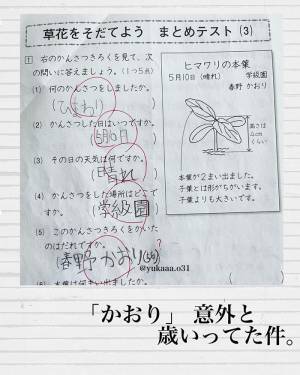 草花をそだてよう まとめテスト(3)
1 右のかんさつきろくを見て、次の問いに答えましょう。(1つ5点)
(1) 何のかんさつをしましたか。
(ひまわり)
(2) かんさつした日はいつですか。
(5月10日)
(3) その日の天気は何ですか。
(晴れ)
(4) かんさつをした場所はどこですか。
(学級園)
(5) このかんさつきろくをかいたのはだれですか。
(春野かおり(54))
?
@yukaaa.o31
ヒマワリの本葉
5月10日(晴れ) 学級園
春野 かおり
高さは
4cm
くらい
本葉が2まい出ました。
子葉とは形がちがいます。
子葉よりも大きいです。
「かおり」 意外と
歳いってた件。